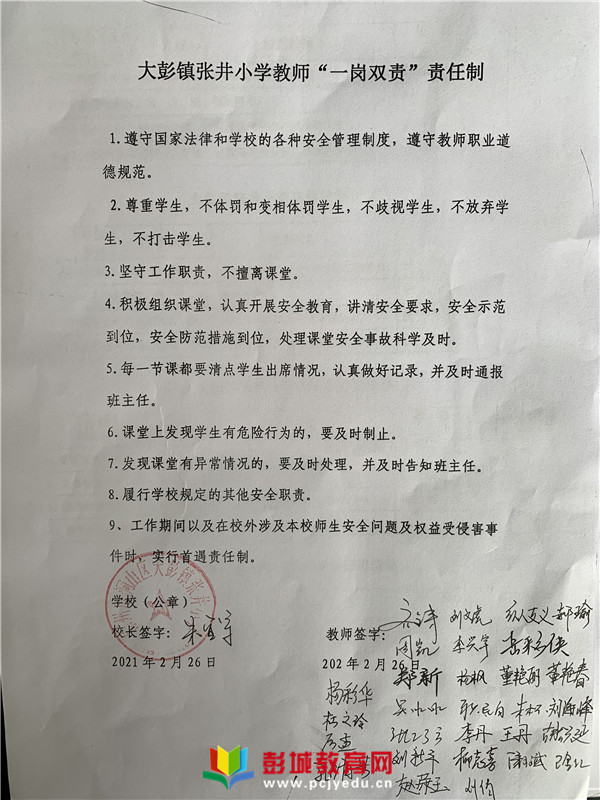 大彭镇张井小学教师“一岗双责”责任制
1.遵守国家法律和学校的各种安全管理制度，遵守教师职业道
德规范。
2.尊重学生，不体罚和变相体罚学生，不歧视学生，不放弃学
生，不打击学生。
3.坚守工作职责，不擅离课堂。
4.积极组织课堂，认真开展安全教育，讲清安全要求，安全示范
到位，安全防范措施到位，处理课堂安全事故科学及时。
5.每一节课都要清点学生出席情况，认真做好记录，并及时通报
班主任。
6.课堂上发现学生有危险行为的，要及时制止。
7.发现课堂有异常情况的，要及时处理，并及时告知班主任。
8.履行学校规定的其他安全职责。
9、工作期间以及在校外涉及本校师生安全问题及权益受侵害事
件时，实行首遇责任制。
学校（公章）
校长签字：
教师签字：
2021年2月26日
202年2月26日
周凯 李兴军
郑新 杨枫 董艳丽 董艳春
杨彩华
杜文玲
李丹 王丹
彭城教育网
www.pcjyedu.com